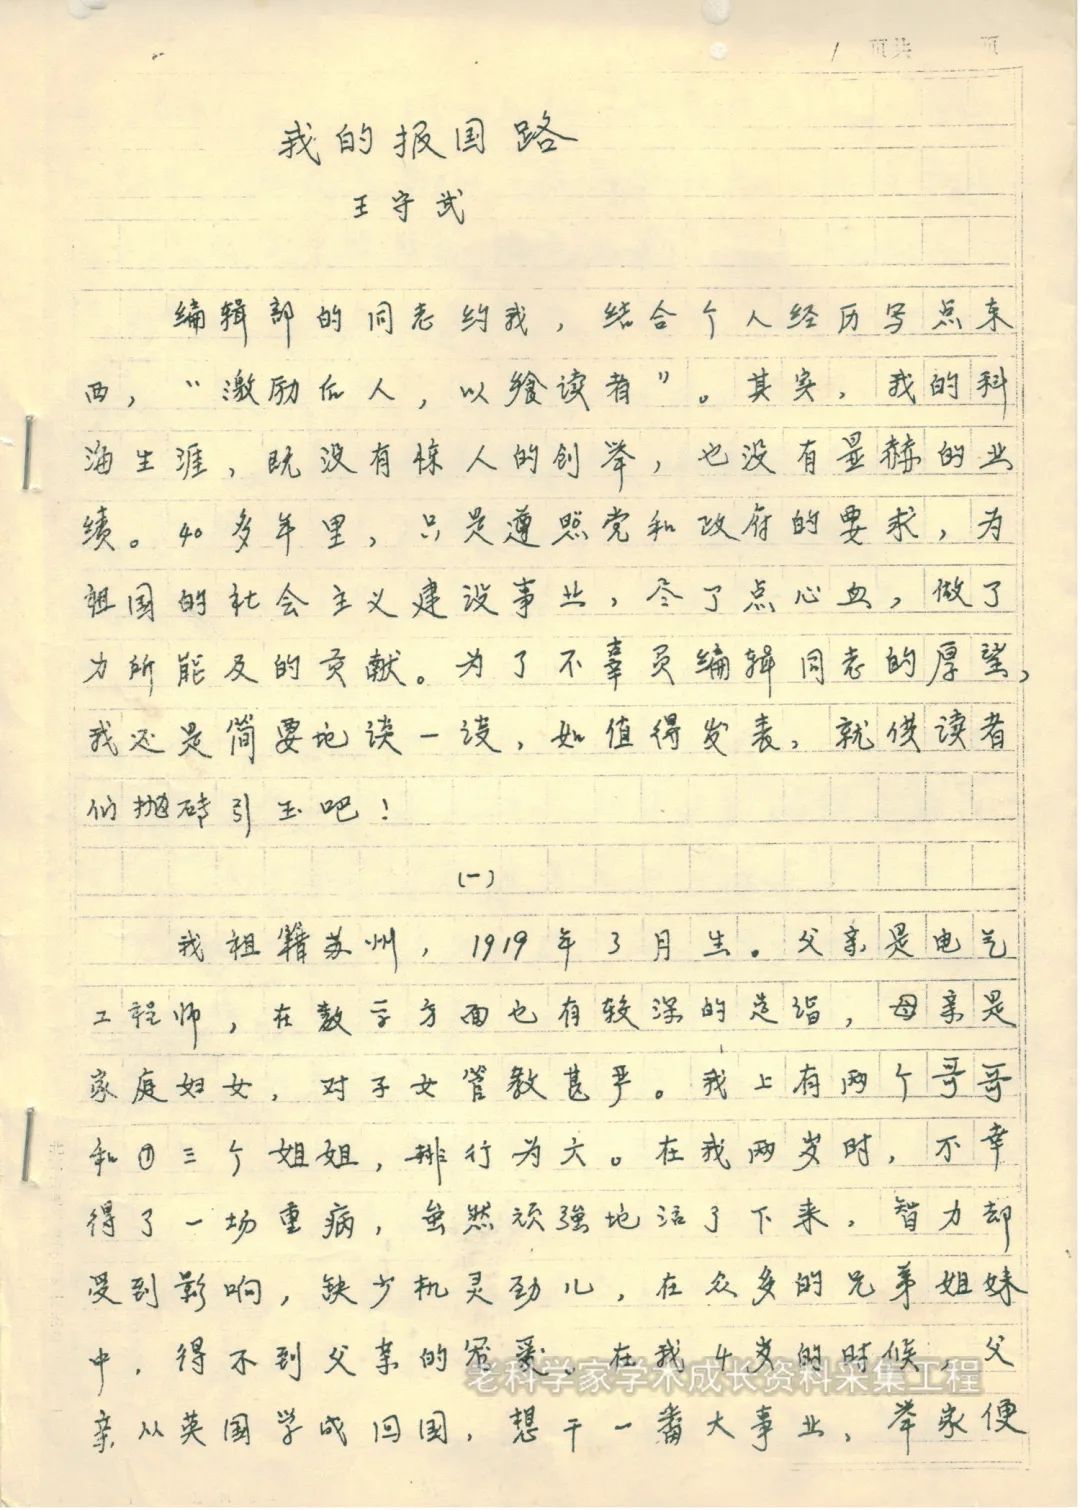 1 页共 页
我的报国路
王守武
编辑部的同志约我，结合个人经历写点东
西，“激励后人，以飨读者”。其实，我的科
海生涯，既没有惊人的创举，也没有显赫的业
绩。40多年里，只是遵照党和政府的要求，为
祖国的社会主义建设事业，尽了点心血，做了
力所能及的贡献。为了不辜负编辑同志的厚望，
我还是简要地谈一谈，如值得发表，就供读者
们抛砖引玉吧！
（一）
我祖籍苏州，1919年3月生。父亲是电气
工程师，在数学方面也有较深的造诣，母亲是
家庭妇女，对子女管教甚严。我上有两个哥哥
和三个姐姐，排行为六。在我两岁时，不幸
得了一场重病，虽然顽强地活了下来，智力却
受到影响，缺少机灵劲儿，在众多的兄弟姐妹
中，得不到父亲的宠爱。在我4岁的时候，父
老科学家学术成长资料采集工程
亲从英国学成回国，想干一番大事业，举家便